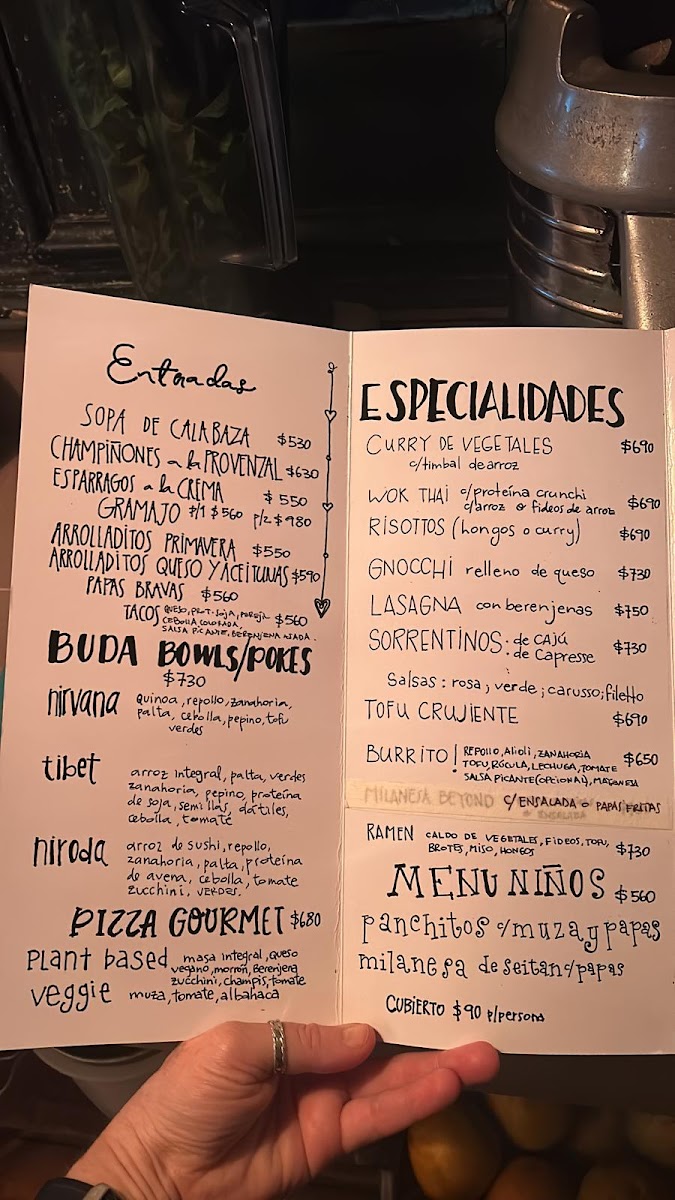 Entradas
SOPA DE CALABAZA $530
CHAMPIÑONES a la PROVENZAL $630
ESPARRAGOS a la CREMA $550
GRAMAJO P/1 $560 P/2 $980
ARROLLADITOS PRIMAVERA $550
ARROLLADITOS QUESO Y ACEITUNAS $590
PAPAS BRAVAS $560
TACOS QUESO, PROT. SOJA, $560
CEBOLLA COLORADA,
SALSA PICANTE, BERENJENA ASADA.
BUDA BOWLS/POKES
$730
nirvana quinoa, repollo, zanahoria,
palta, cebolla, pepino, tofu
verdes
tibet arroz integral, palta, verdes
zanahoria, pepino, proteína
de soja, semillas, dátiles,
cebolla, tomate
niroda arroz de sushi, repollo,
zanahoria, palta, proteína
de avena, cebolla, tomate
zucchini, VERDES.
PIZZA GOURMET $680
PLant based masa integral, queso
vegano, morron, Berenjena
zucchini, champis, tomate
veggie muza, tomate, albahaca
ESPECIALIDADES
CURRY DE VEGETALES $690
c/timbal de arroz
WOK THAI c/proteína crunchi
c/arroz o fideos de arroz $690
RISOTTOS (hongos o curry) $690
GNOCCHI relleno de queso $730
LASAGNA con berenjenas $750
SORRENTINOS: de CAJÚ
: de Capresse $730
Salsas: rosa; verde; carusso; filetto
TOFU CRUJIENTE $690
BURRITO! REPOLLO, Alioli, ZANAHORIA $650
TOFU, RÚCULA, LECHUGA, TOMATE
SALSA PICANTE (OPCIONAL), MAYONESA
MILANESA BEYOND C/ENSALADA o PAPAS FRITAS
RAMEN CALDO DE VEGETALES, FIDEOS, TOFU,
BROTES, MISO, HONGOS $730
MENU NIÑOS $560
panchitos c/muza y papas
milanesa de seitan c/papas
CUBIERTO $90 p/persona